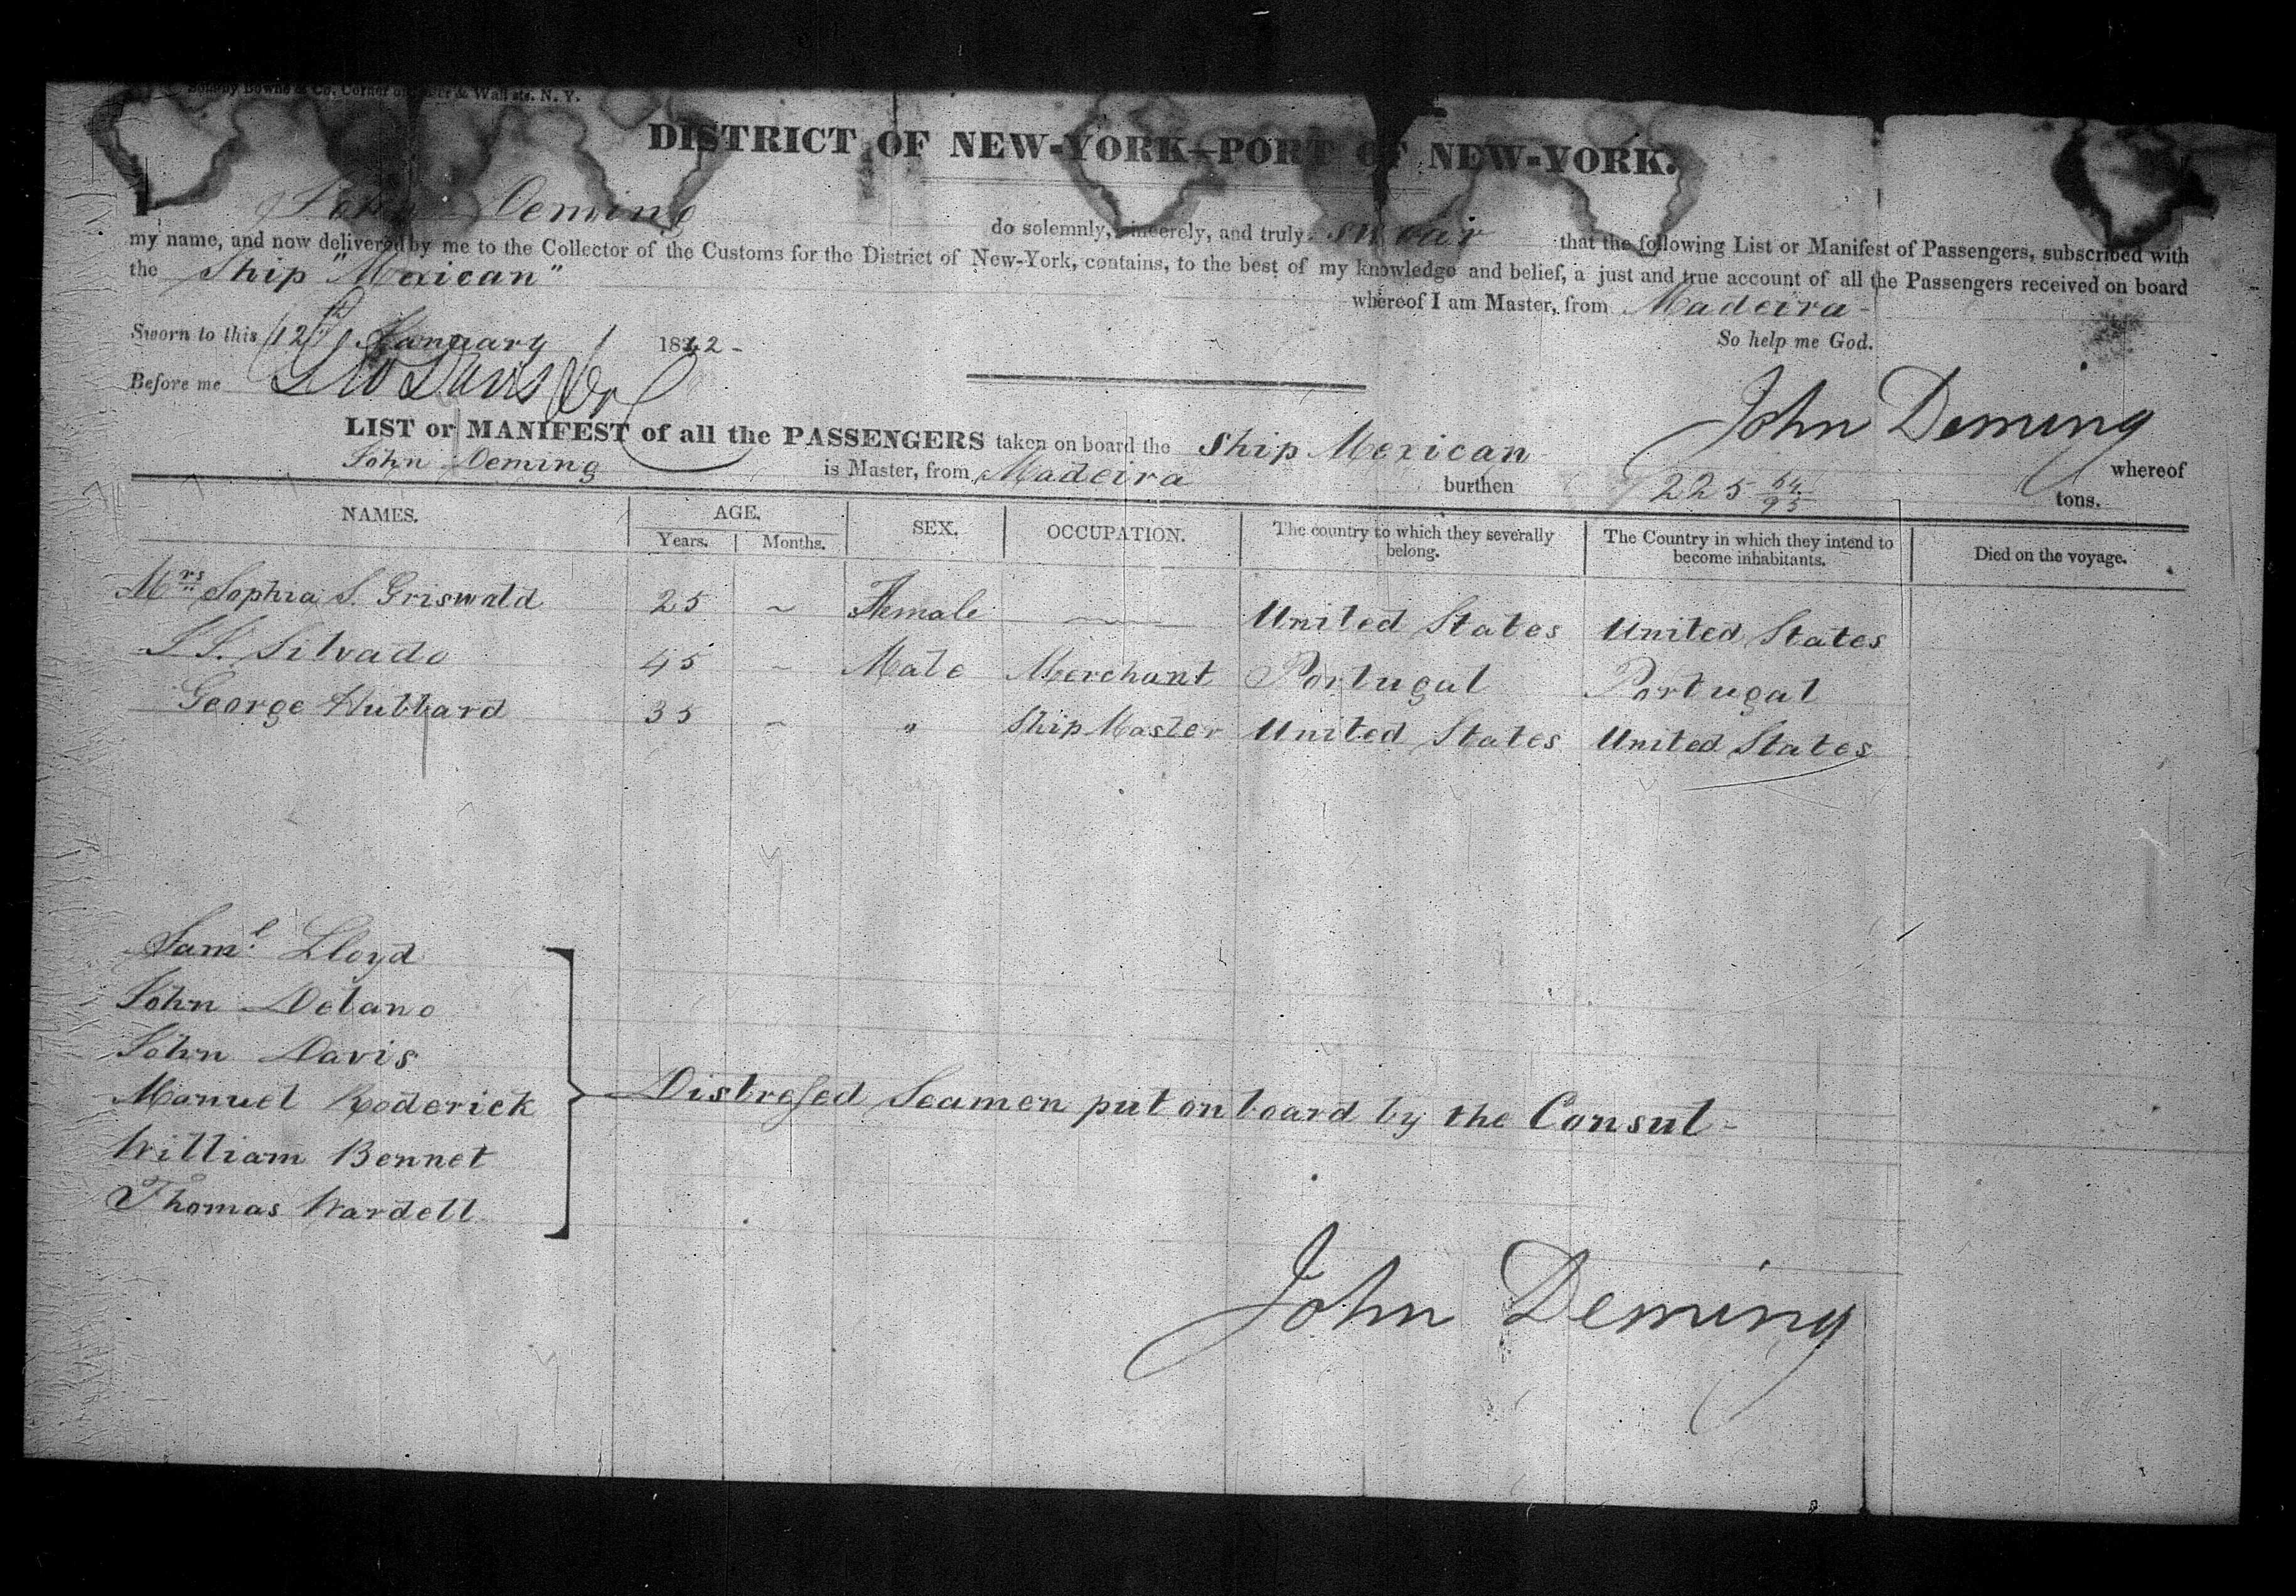 Bowne & Co. Corner of & Wall sts. N. Y.
DISTRICT OF NEW-YORK—PORT OF NEW-YORK.
I, John Deming do solemnly, sincerely, and truly swear that the following List or Manifest of Passengers, subscribed with
my name, and now delivered by me to the Collector of the Customs for the District of New-York, contains, to the best of my knowledge and belief, a just and true account of all the Passengers received on board
the Ship "Mexican" whereof I am Master, from Madeira -
Sworn to this 12th January 1842 - So help me God.
Before me Davis
John Deming
LIST or MANIFEST of all the PASSENGERS taken on board the Ship Mexican whereof
John Deming is Master, from Madeira burthen 225 64/95 tons.
NAMES. AGE. SEX. OCCUPATION. The country to which they severally belong. The Country in which they intend to become inhabitants. Died on the voyage.
Years. Months.
Mrs Sophia S. Griswald 25 ~ Female — United States United States
S. S. Silvado 45 ~ Male Merchant Portugal Portugal
George Hubbard 35 ~ " Ship Master United States United States
Saml. Lloyd
John Delano
John Davis
Manuel Roderick
Distressed Seamen put on board by the Consul -
William Bennet
Thomas Wardell
John Deming